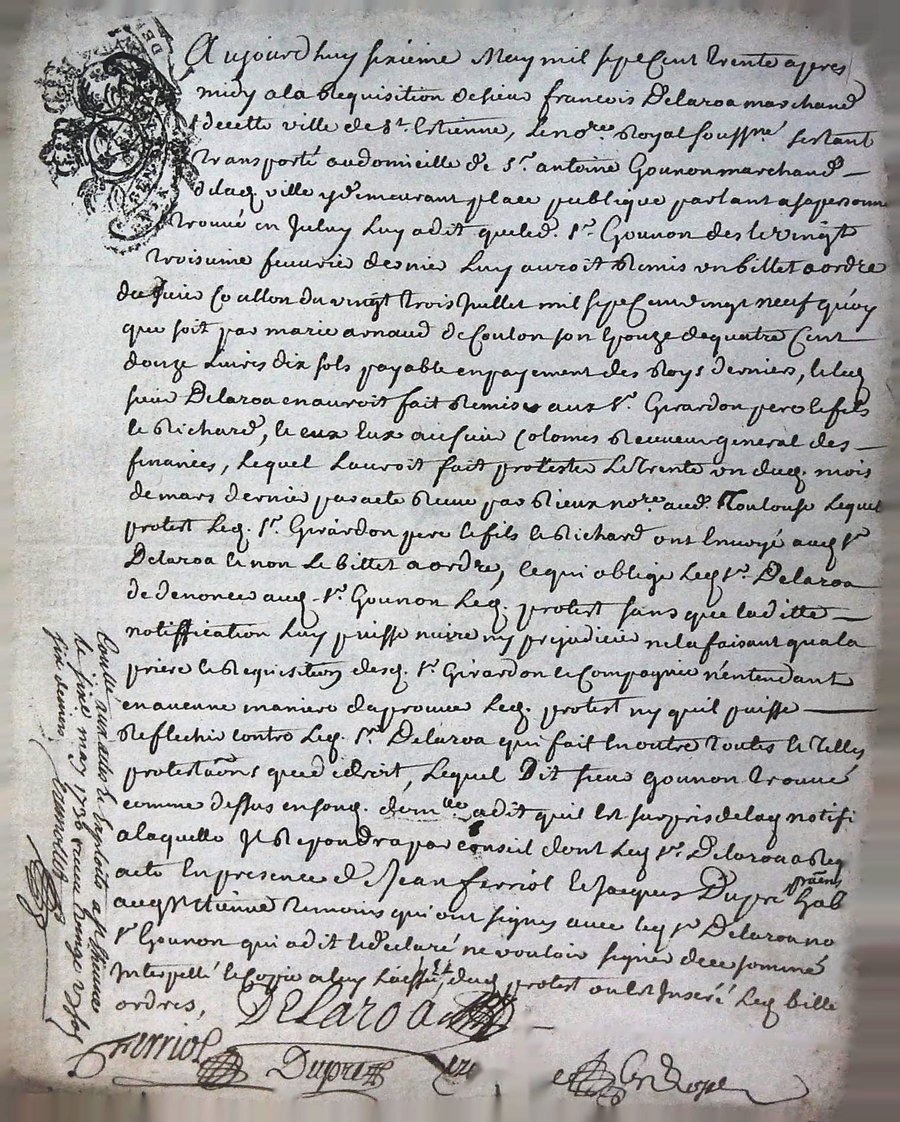 Aujourd huy sixieme May mil sept Cent trente apres
midy a la Requisition de sieur francois Delaroa marchand
de cette ville de St. Estienne, le nore. Royal soussné sestant
transporté au domicille de Sr. antoine Gounon marchand
de lad. ville y demeurant place publique parlant a sa personne
trouvé en Icluy Luy a dit que led. Sr. Gounon des le vingt
troisieme feuvrier dernier Luy auroit Remis un billet a ordre
du sieur Coullon du vingt trois Juillet mil sept Cent vingt neuf quoy
que soit par marie arnaud de Coulon son Epouze de quatre Cent
douze Livres dix sols payable en payement des Roys derniers, leq
sieur Delaroa en auroit fait Remise aux Srs. Girardon pere le fils
le Richard, le eux aud sieur Colomes Receveur general des
finances, Lequel Lauroit fait protester Le trente un dud. mois
de mars dernier par acte Receu par Rieux nore. aud. Toulouse Lequel
protest Leq. Sr. Girardon pere le fils le Richard ont Envoyé aud Sr
Delaroa le non Le billet a ordre, ce qui oblige Leq Sr. Delaroa
de denoncer auq. Sr. Gounon Leq. protest sans que laditte
notiffication Luy puisse nuire ny prejudicier ne la faisant qua la
priere le Requisition desq. Sr. Girardon le Compagnie n'entendant
en aucune maniere daprouver Leq. protest ny quil puisse
Reflechir contre Leq. Sr. Delaroa qui fait En outre toutes le telles
protestaons que de droit, Lequel Dit sieur Gounon trouvé
comme dessus en son q. domlle a dit quil est surpris de laq notiffi
a laquelle Il Repondra par conseil dont Leq Sr. Delaroa a Req
acte En presence de Jean ferriol le Jacques Dupré praēn hab
auq St Etienne temoins qui ont signés avec leq Sr Delaroa no
Sr Gounon qui a dit le declaré ne vouloir signer de ce sommé
Interpellé le Coppie a luy Laissée, duq protest ou est Inseré Leq bille
ordres,
DeLaroa
Ferriol
Dupre
Conllé aux actes le Exploits a St Etienne
le six may 1730 receu
six deniers